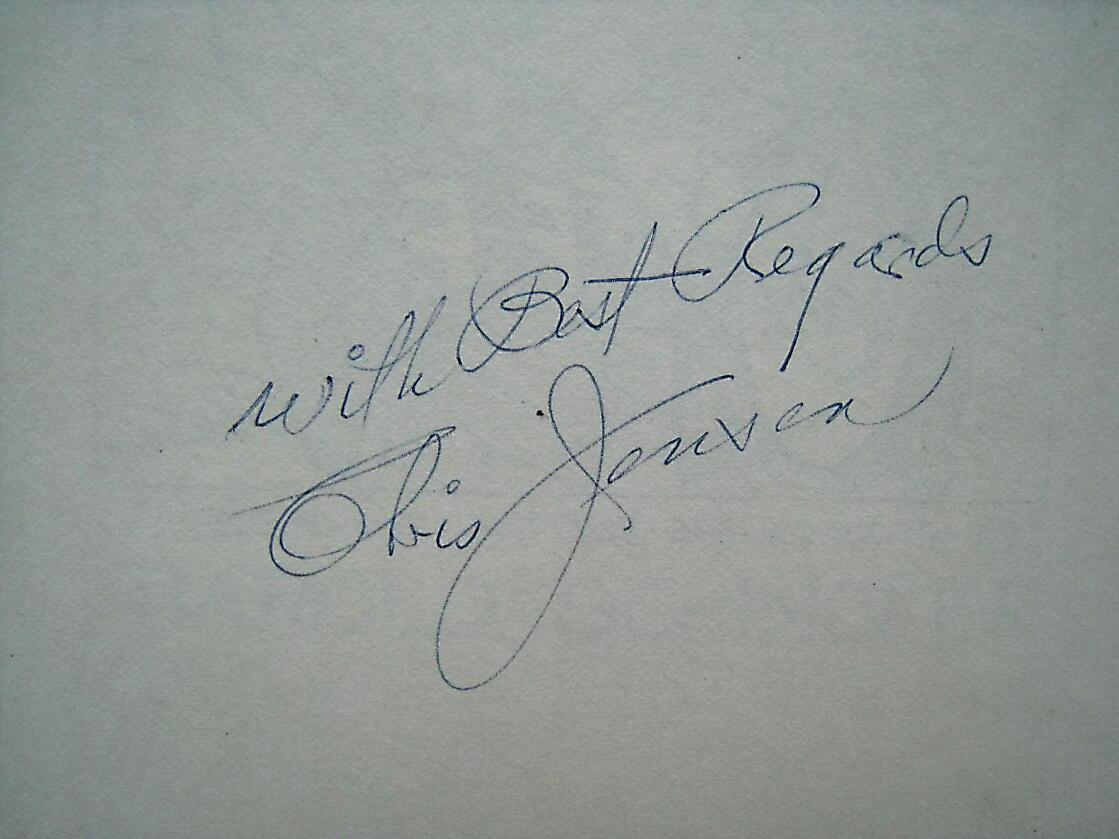 with Best Regards
Jensen